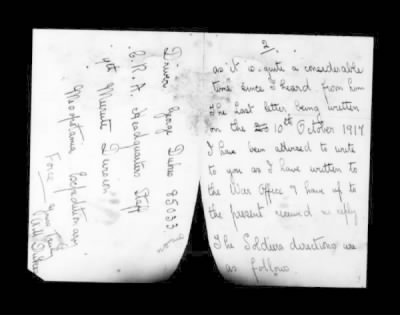 2/
as it is quite a considerable
time since I heard from him
the last letter being written
on the 10th October 1917
I have been advised to write
to you as I have written to
the War Office & have up to
the present received no reply
The Soldiers directions are
as follows
Driver George Dukes 85033
C. R. A. Headquarters Staff
4th Meerut Division
Mesopotamia Expeditionary
Force
Yours Truly